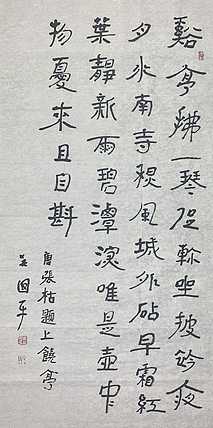 谿亭拂一琴促軫坐披衿夜
月水南寺秋風城外砧早霜紅
葉靜新雨碧潭深唯是壺中
物憂來且自斟
唐張祜題上饒亭
吴国平